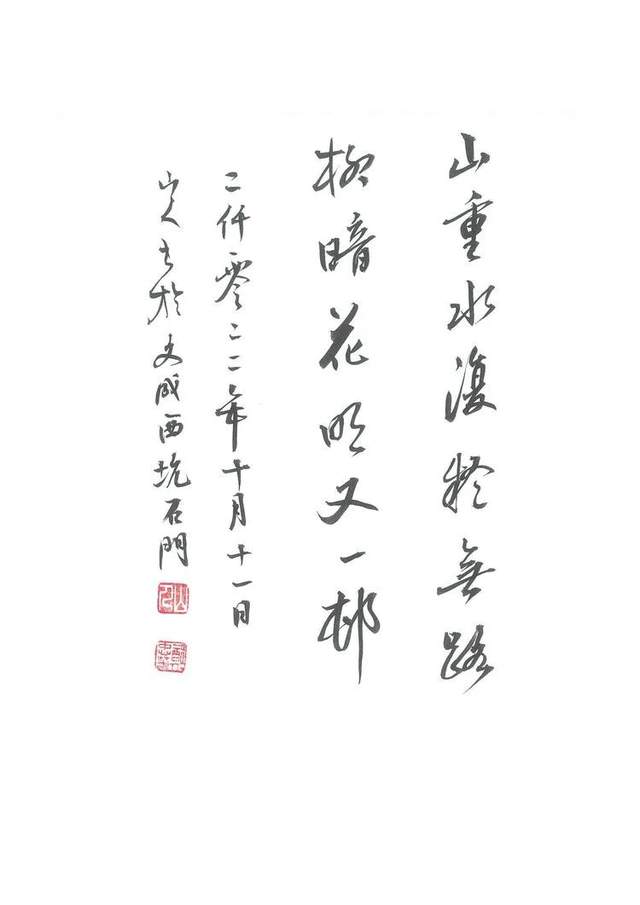 山重水復疑無路
柳暗花明又一邨
二仟零二二年十月十一日
山人书於文成西坑石門
山人